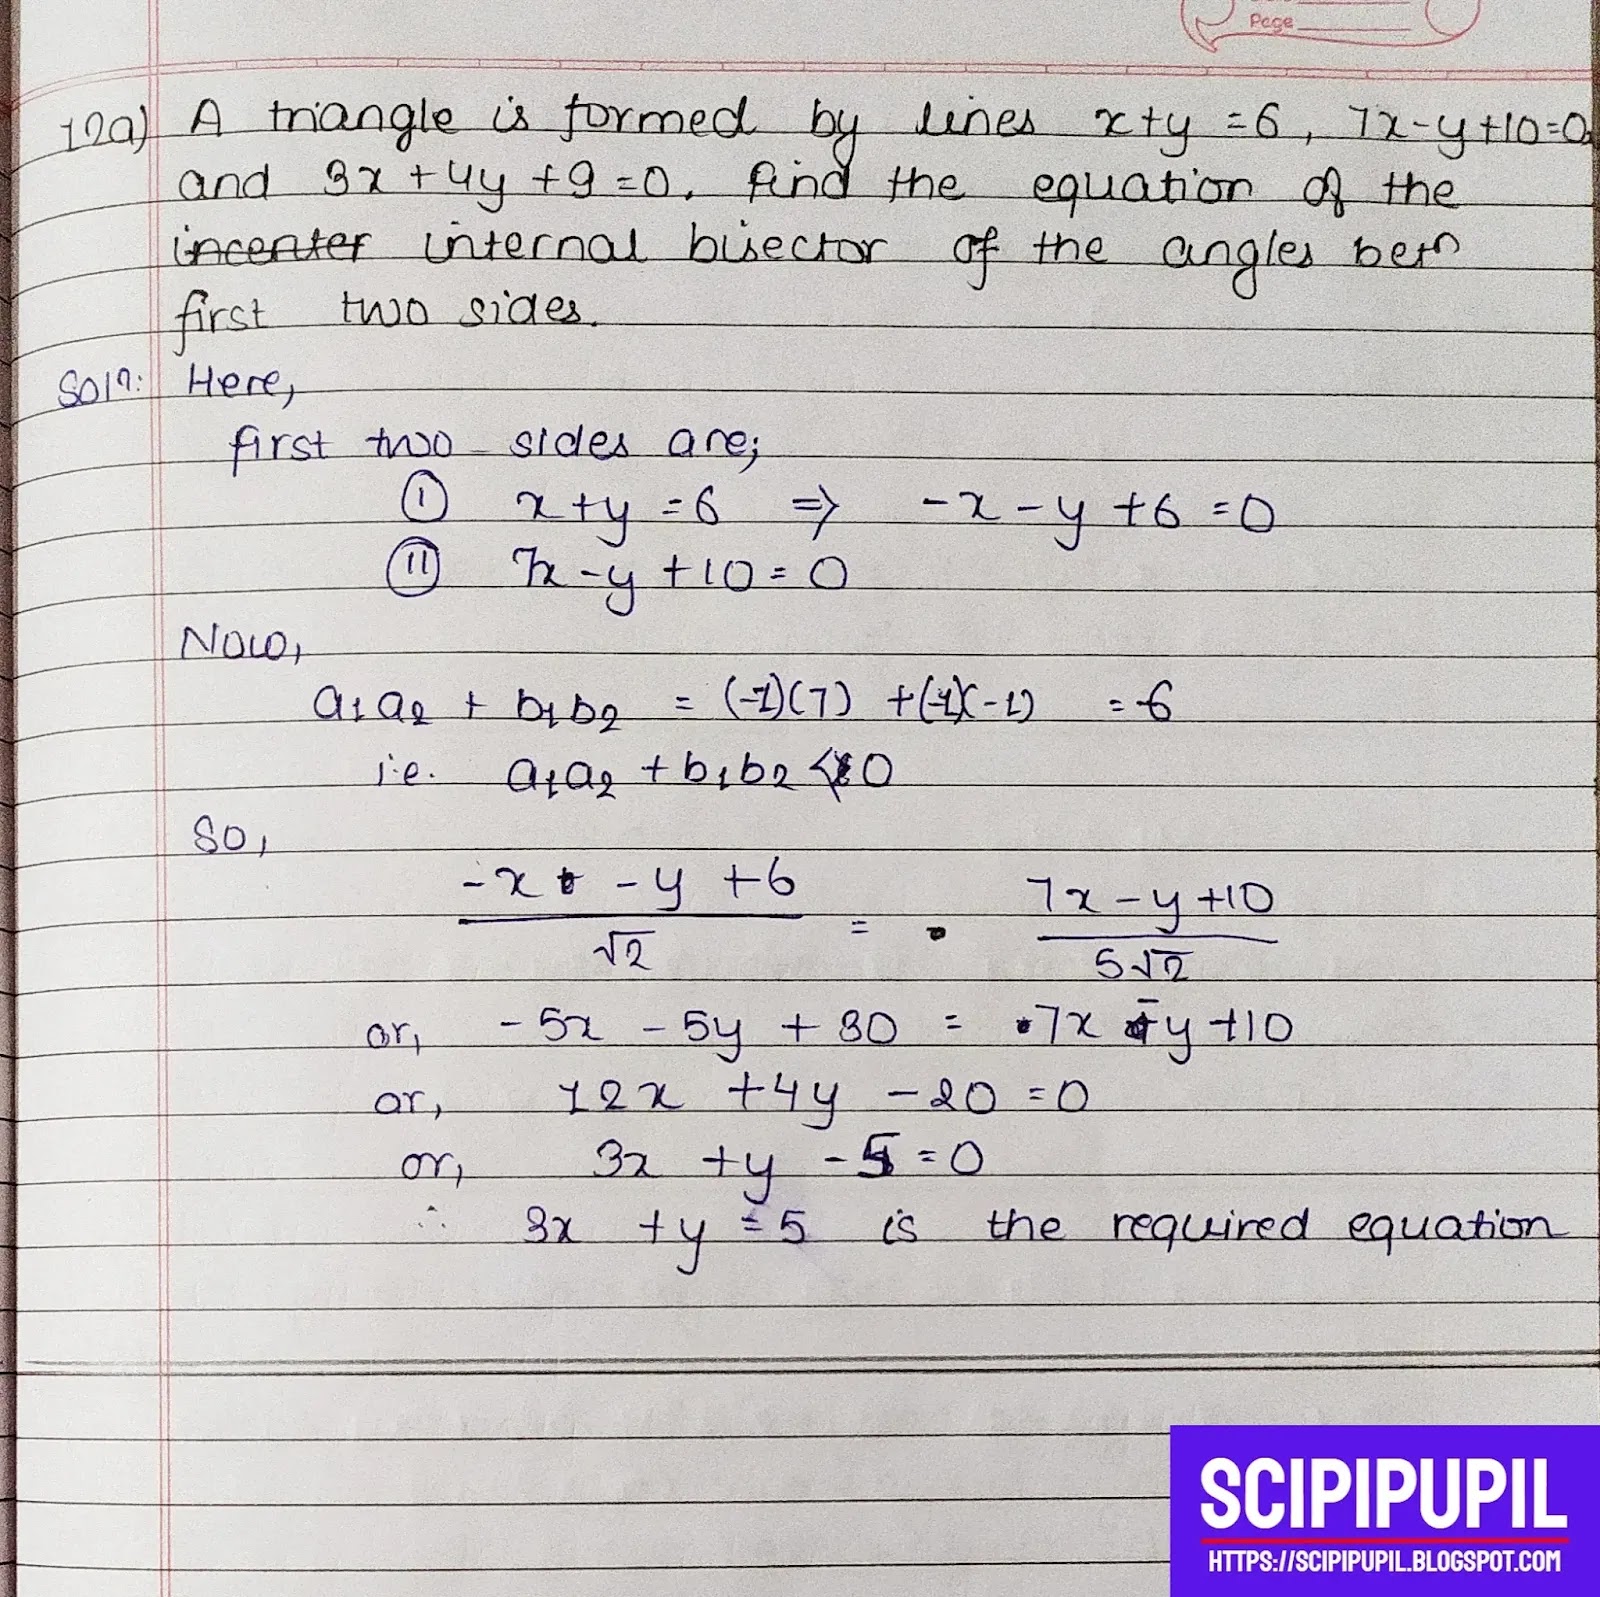 Page
12a) A triangle is formed by lines x+y=6, 7x-y+10=0
and 3x+4y+9=0. find the equation of the
incenter internal bisector of the angles betn
first two sides.
Soln: Here,
first two sides are;
(I) x+y=6 ⇒ -x-y+6=0
(II) 7x-y+10=0
Now,
a₁a₂ + b₁b₂ = (-1)(7) + (-1)(-1) = -6
i.e. a₁a₂ + b₁b₂ < 0
So,
-x - y + 6 / √2 = 7x - y + 10 / 5√2
or, -5x - 5y + 30 = 7x - y + 10
or, 12x + 4y - 20 = 0
or, 3x + y - 5 = 0
∴ 3x + y = 5 is the required equation
SCIPIPUPIL
HTTPS://SCIPIPUPIL.BLOGSPOT.COM